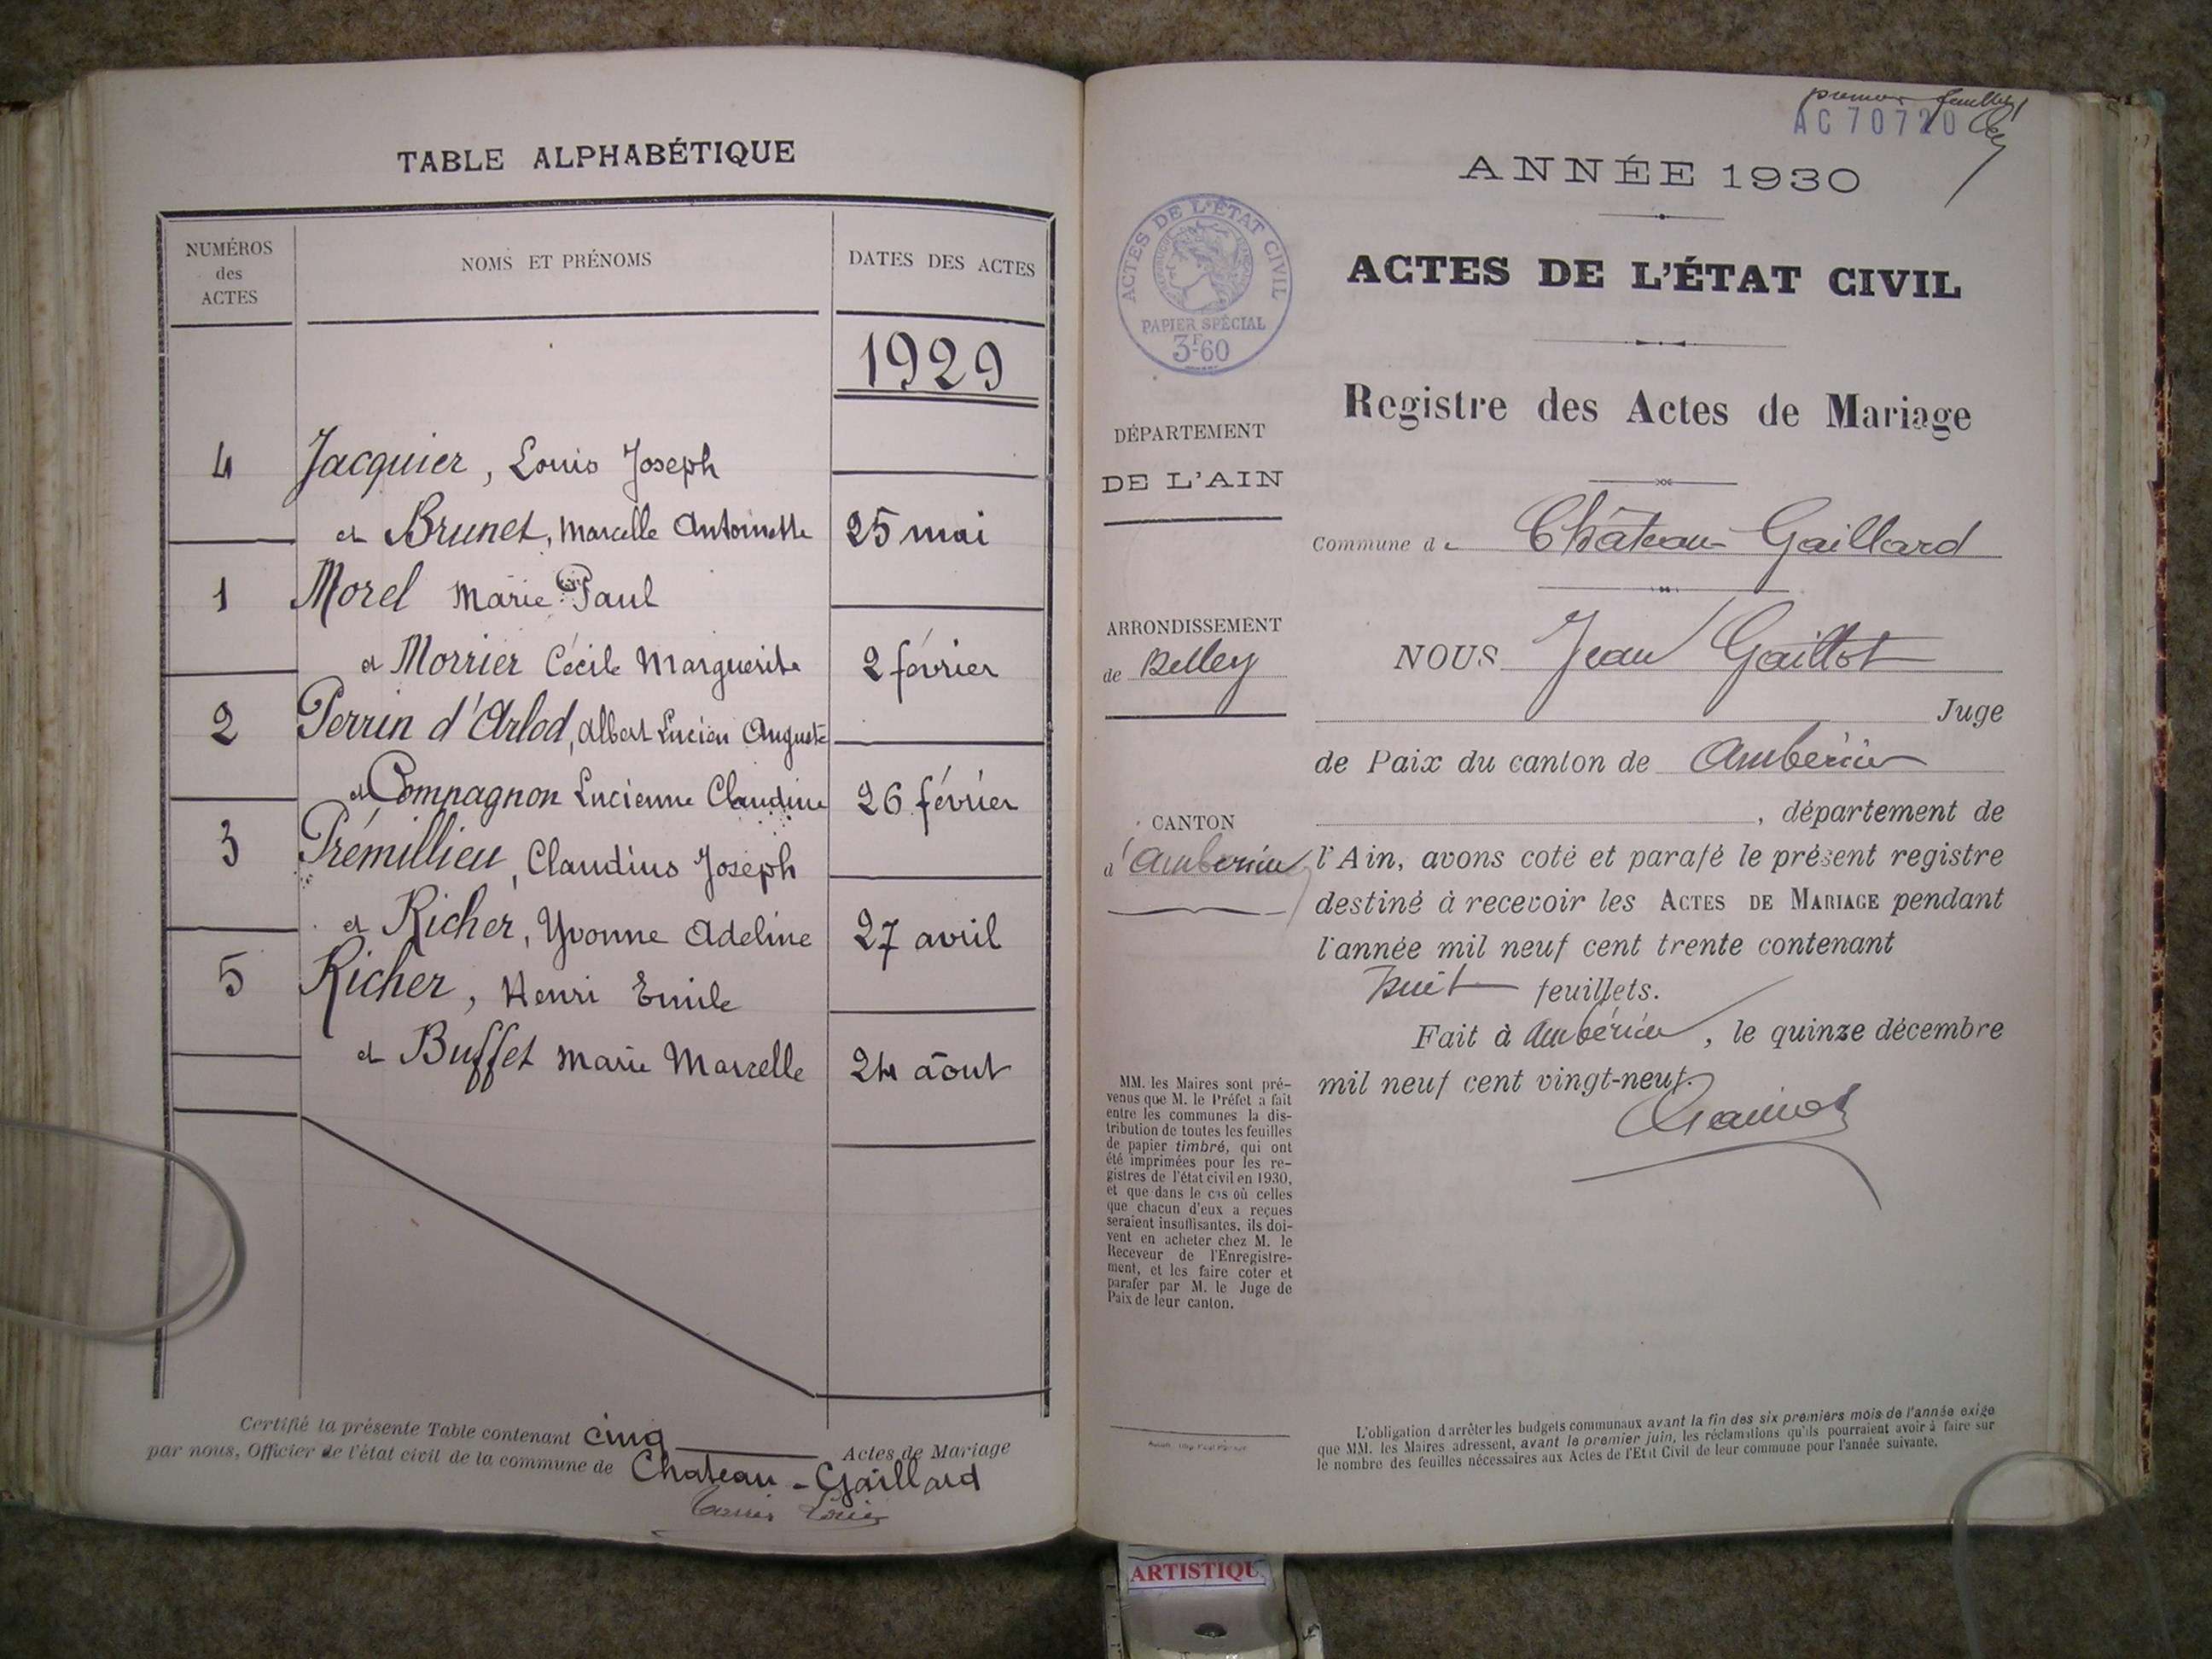 TABLE ALPHABÉTIQUE
NUMÉROS
des
ACTES
NOMS ET PRÉNOMS
DATES DES ACTES
1929
4 Jacquier, Louis Joseph
et Brunet, Marcelle Antoinette 25 mai
1 Morel Marie Paul
et Morrier Cécile Marguerite 2 février
2 Perrin d'Arlod, Albert Lucien Auguste
et Compagnon Lucienne Claudine 26 février
3 Prémillieu, Claudius Joseph
et Richer, Yvonne Adeline 27 avril
5 Richer, Henri Emile
et Buffet Marie Marcelle 24 août
Certifié la présente Table contenant cinq Actes de Mariage
par nous, Officier de l'état civil de la commune de Chateau-Gaillard
premier feuillet
AC 70720
ANNÉE 1930
ACTES DE L'ÉTAT CIVIL
PAPIER SPÉCIAL
3F60
ACTES DE L'ÉTAT CIVIL
Registre des Actes de Mariage
DÉPARTEMENT
DE L'AIN
Commune de Château-Gaillard
ARRONDISSEMENT
de Belley
NOUS Jean Gaillot
Juge
de Paix du canton de Ambérieu
, département de
CANTON
d'Ambérieu
l'Ain, avons coté et parafé le présent registre
destiné à recevoir les ACTES DE MARIAGE pendant
l'année mil neuf cent trente contenant
huit feuillets.
Fait à Ambérieu, le quinze décembre
mil neuf cent vingt-neuf.
MM. les Maires sont pré-
venus que M. le Préfet a fait
entre les communes la dis-
tribution de toutes les feuilles
de papier timbré, qui ont
été imprimées pour les re-
gistres de l'état civil en 1930,
et que dans le cas où celles
que chacun d'eux a reçues
seraient insuffisantes, ils doi-
vent en acheter chez M. le
Receveur de l'Enregistre-
ment, et les faire coter et
parafer par M. le Juge de
Paix de leur canton.
L'obligation d'arrêter les budgets communaux avant la fin des six premiers mois de l'année exige
que MM. les Maires adressent, avant le premier juin, les réclamations qu'ils pourraient avoir à faire sur
le nombre des feuilles nécessaires aux Actes de l'Etat Civil de leur commune pour l'année suivante.
ARTISTIQU